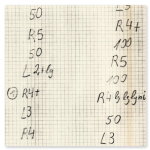 50
R5
50
L2+lg
R4+
L3
R4
L3
R4+
100
R5
100
50
L3